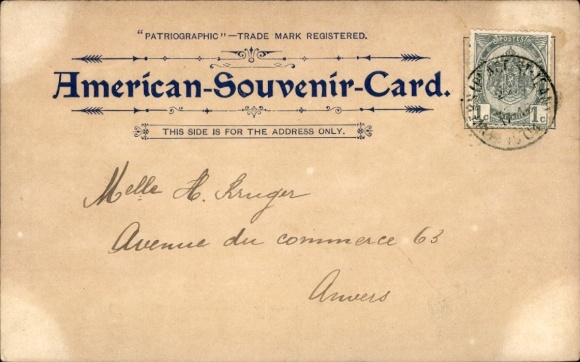 "PATRIOGRAPHIC"—TRADE MARK REGISTERED.
American-Souvenir-Card.
THIS SIDE IS FOR THE ADDRESS ONLY.
POSTES
1c 1c
Melle H. Kruger
Avenue du commerce 63
Anvers